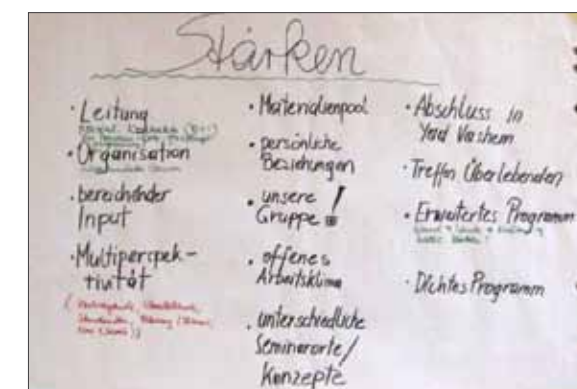 Stärken
· Leitung
· Organisation
· bereichender
Input
· Multiperspek-
tivität
· Materialienpool
· persönliche
Beziehungen
· unsere
Gruppe !
· offenes
Arbeitsklima
· unterschiedliche
Seminarorte/
Konzepte
· Abschluss in
Yad Vashem
· Treffen Überlebenden
· Erweitertes Programm
· Dichtes Programm